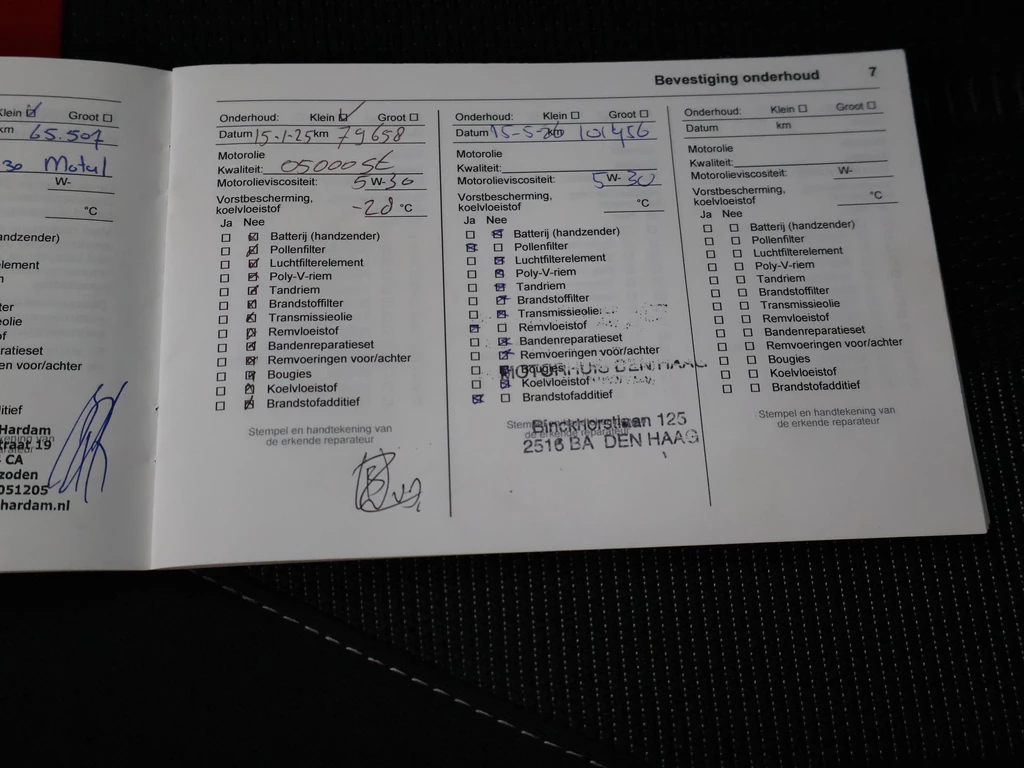 Bevestiging onderhoud 7
Klein Groot
km 65.507
30 Motul
W-
°C
andzender)
lement
ter
olie
of
ratieset
en voor/achter
ditief
Hardam
traat 19
CA
zoden
051205
hardam.nl
Onderhoud: Klein Groot
Datum 15-1-25 km 79658
Motorolie
Kwaliteit:
Motorolieviscositeit: 5 W-30
Vorstbescherming,
koelvloeistof -28 °C
Ja Nee
Batterij (handzender)
Pollenfilter
Luchtfilterelement
Poly-V-riem
Tandriem
Brandstoffilter
Transmissieolie
Remvloeistof
Bandenreparatieset
Remvoeringen voor/achter
Bougies
Koelvloeistof
Brandstofadditief
Stempel en handtekening van
de erkende reparateur
Onderhoud: Klein Groot
Datum 15-5-26 km 101456
Motorolie
Kwaliteit:
Motorolieviscositeit: 5 W- 30
Vorstbescherming,
koelvloeistof °C
Ja Nee
Batterij (handzender)
Pollenfilter
Luchtfilterelement
Poly-V-riem
Tandriem
Brandstoffilter
Transmissieolie
Remvloeistof
Bandenreparatieset
Remvoeringen voor/achter
Bougies
MOTORHUIS DEN HAAG
Koelvloeistof
Brandstofadditief
Stempel en handtekening van
de erkende reparateur
Binckhorstlaan 125
2516 BA DEN HAAG
Onderhoud: Klein Groot
Datum km
Motorolie
Kwaliteit:
Motorolieviscositeit: W-
Vorstbescherming,
koelvloeistof °C
Ja Nee
Batterij (handzender)
Pollenfilter
Luchtfilterelement
Poly-V-riem
Tandriem
Brandstoffilter
Transmissieolie
Remvloeistof
Bandenreparatieset
Remvoeringen voor/achter
Bougies
Koelvloeistof
Brandstofadditief
Stempel en handtekening van
de erkende reparateur